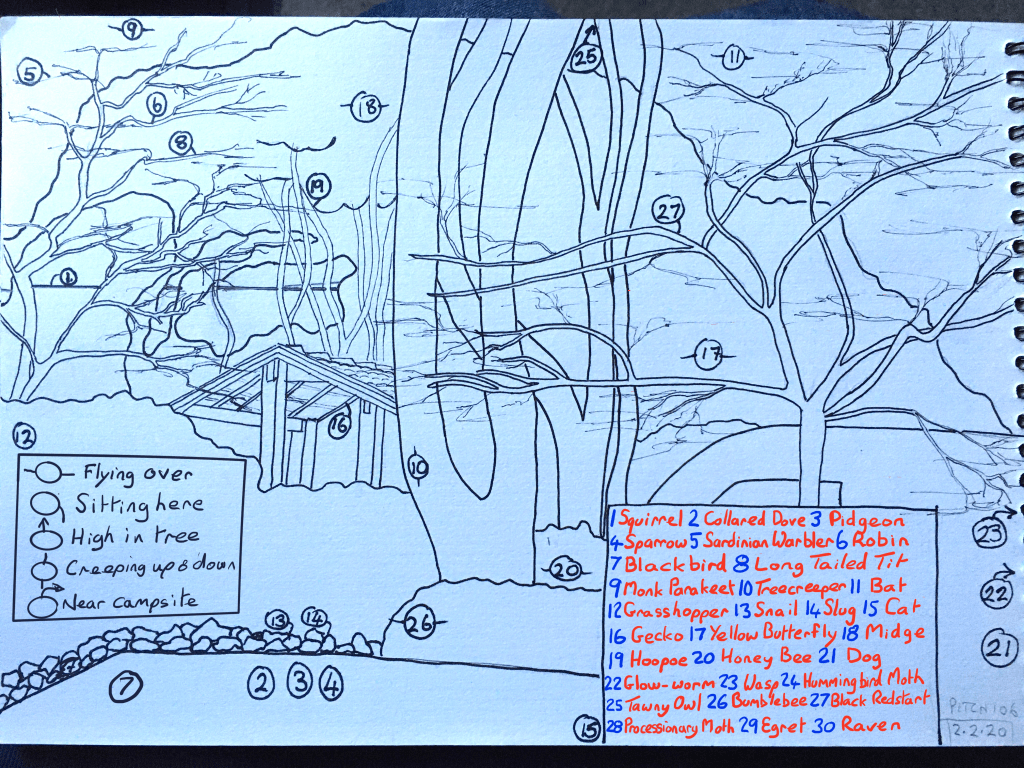 9
5
6
8
18
25
11
19
27
17
16
12
10
Flying over
Sitting here
High in tree
Creeping up & down
Near campsite
13 14
7 2 3 4
26
20
15
23
22
21
1 Squirrel 2 Collared Dove 3 Pidgeon
4 Sparrow 5 Sardinian Warbler 6 Robin
7 Blackbird 8 Long Tailed Tit
9 Monk Parakeet 10 Treecreeper 11 Bat
12 Grasshopper 13 Snail 14 Slug 15 Cat
16 Gecko 17 Yellow Butterfly 18 Midge
19 Hoopoe 20 Honey Bee 21 Dog
22 Glow-worm 23 Wasp 24 Hummingbird Moth
25 Tawny Owl 26 Bumblebee 27 Black Redstart
28 Processionary Moth 29 Egret 30 Raven
PITCH 106
2.2.20